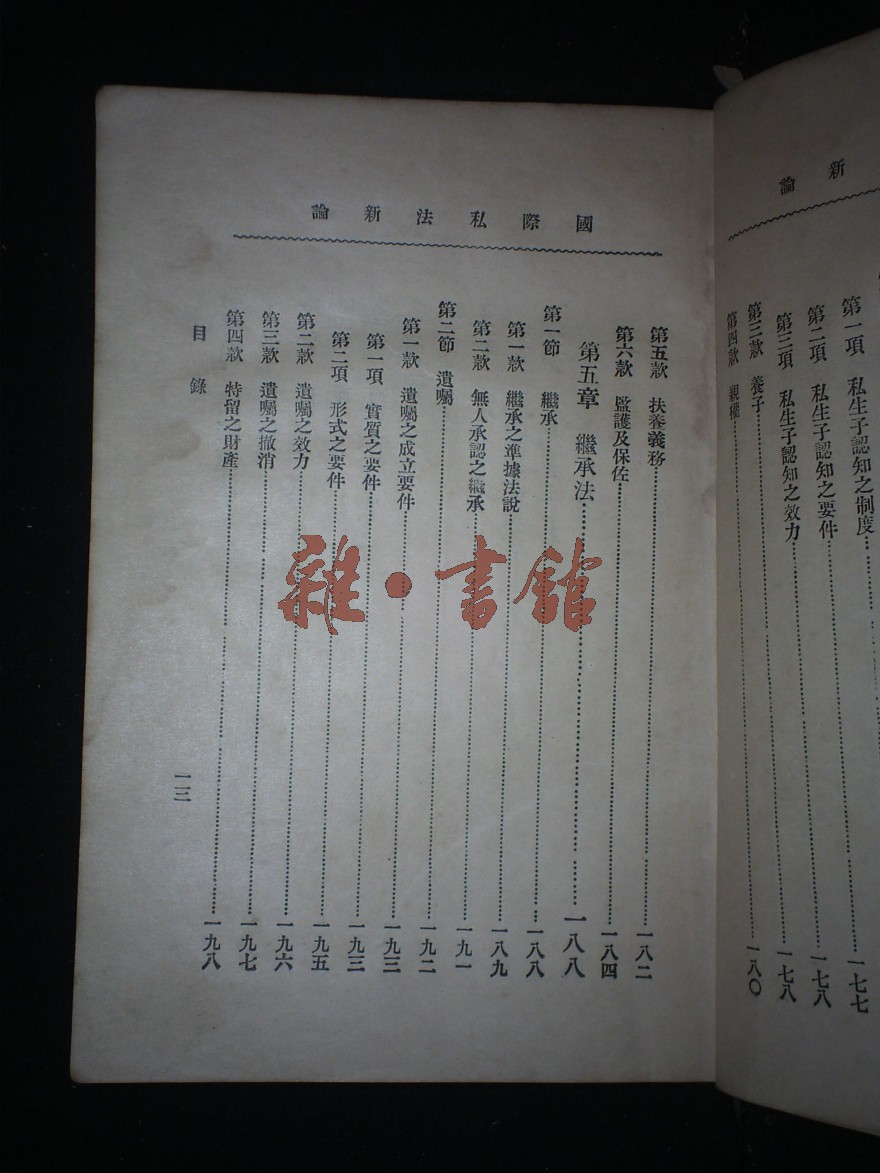 新論
第一項 私生子認知之制度 一七七
第二項 私生子認知之要件 一七八
第三項 私生子認知之效力 一七八
第三款 養子 一八〇
第四款 親權
國際私法新論
第五款 扶養義務 一八二
第六款 監護及保佐 一八四
第五章 繼承法 一八八
第一節 繼承 一八八
第一款 繼承之準據法說 一八九
第二款 無人承認之繼承 一九一
第二節 遺囑 一九二
第一款 遺囑之成立要件 一九三
第一項 實質之要件 一九三
第二項 形式之要件 一九五
第二款 遺囑之效力 一九六
第三款 遺囑之撤消 一九七
第四款 特留之財產 一九八
目錄
一三
雜·書館